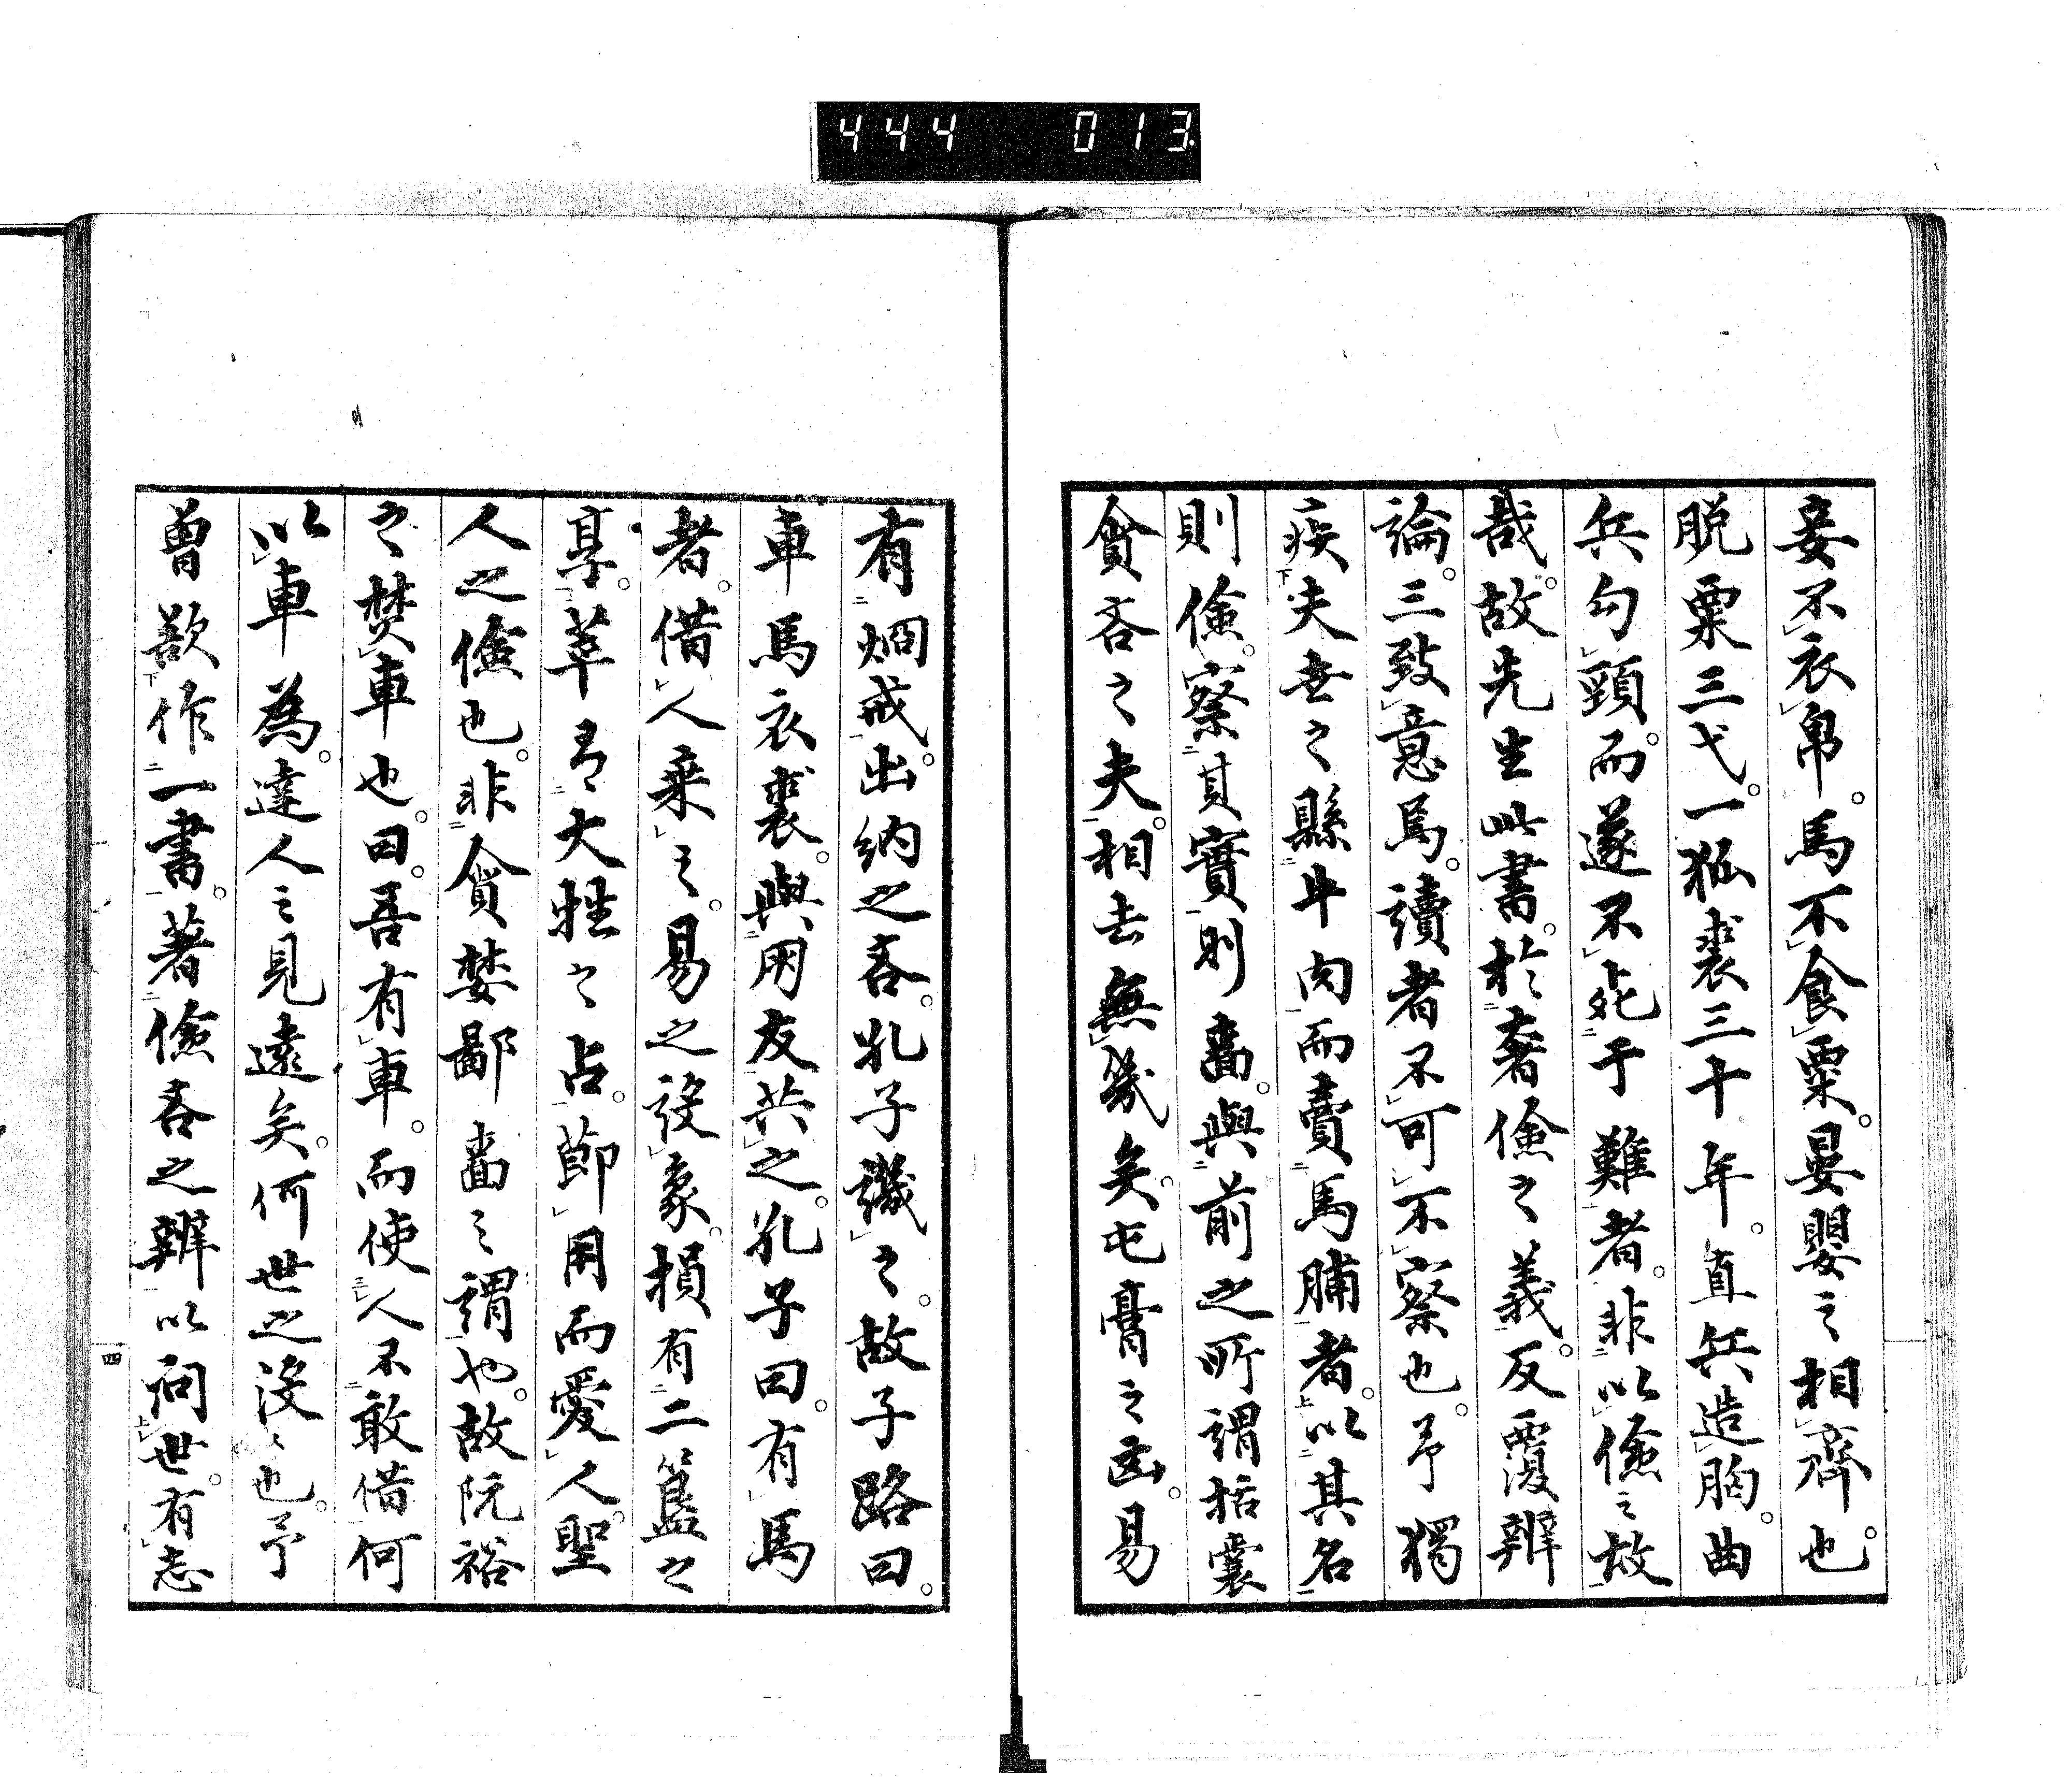 444 013
妾不衣帛。馬不食粟。晏嬰之相齊也。
脱粟三弋。一狐裘三十年。直兵造胸。曲
兵勾頸。而遂不死于難者。非以儉之故
哉。故先生此書。於奢儉之義。反覆辨
論。三致意焉。讀者不可不察也。予獨
疾夫世之縣牛肉而賣馬脯者。以其名
則儉。察其實則嗇。與前之所謂括囊
貪吝之夫。相去無幾矣。屯膏之凶。易
有烱戒。出納之吝。孔子譏之。故子路曰。
車馬衣裘。與用友共之。孔子曰。有馬
者。借人乘之。易之設象。損有二簋之
享。萃有大牲之占。節用而愛人。聖
人之儉也。非貪婪鄙嗇之謂也。故阮裕
之焚車也。曰。吾有車。而使人不敢借何
以車為。達人之見遠矣。何世之沒々也。予
曽欲作一書。著儉吝之辨以問世。有志
四